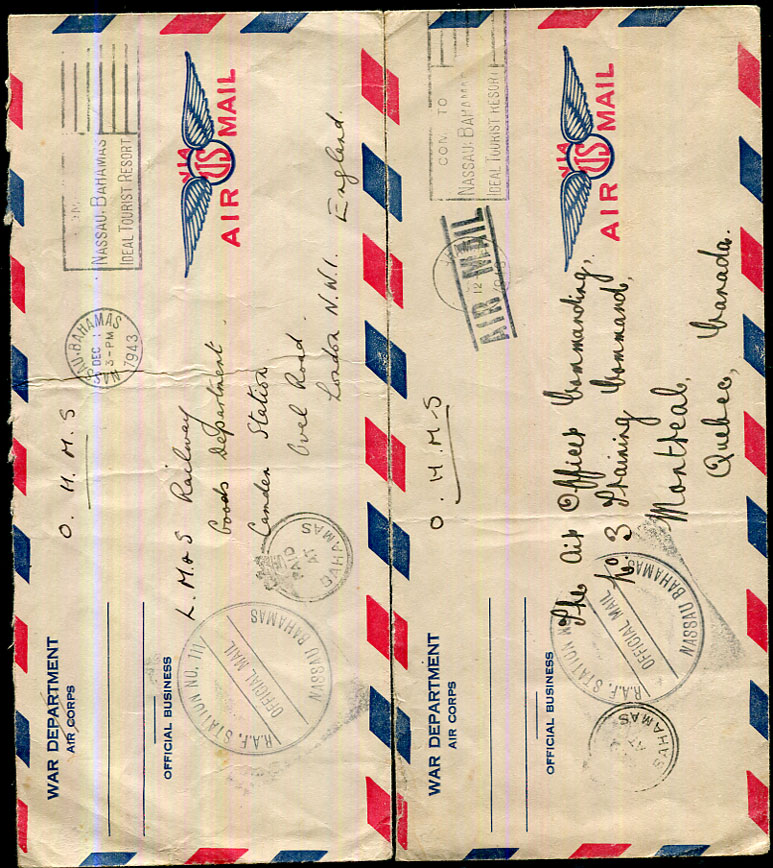 WAR DEPARTMENT
AIR CORPS
OFFICIAL BUSINESS
O. H. M. S
NASSAU. BAHAMAS
DEC 1
3-PM
1943
NASSAU. BAHAMAS
IDEAL TOURIST RESORT
VIA
US
AIR MAIL
L. M & S Railway
Goods Department
Camden Station
Oval Road.
London N.W.1. England.
PAID
AT
BAHAMAS
R.A.F. STATION NO. 111
OFFICIAL MAIL
NASSAU BAHAMAS
WAR DEPARTMENT
AIR CORPS
OFFICIAL BUSINESS
O. H. M. S
AIR MAIL
12
COM TO
NASSAU. BAHAMAS
IDEAL TOURIST RESORT
VIA
US
AIR MAIL
The Air Officer Commanding,
No. 3 Training Command,
Montreal,
Quebec, Canada.
R.A.F. STATION
OFFICIAL MAIL
NASSAU BAHAMAS
AT
BAHAMAS